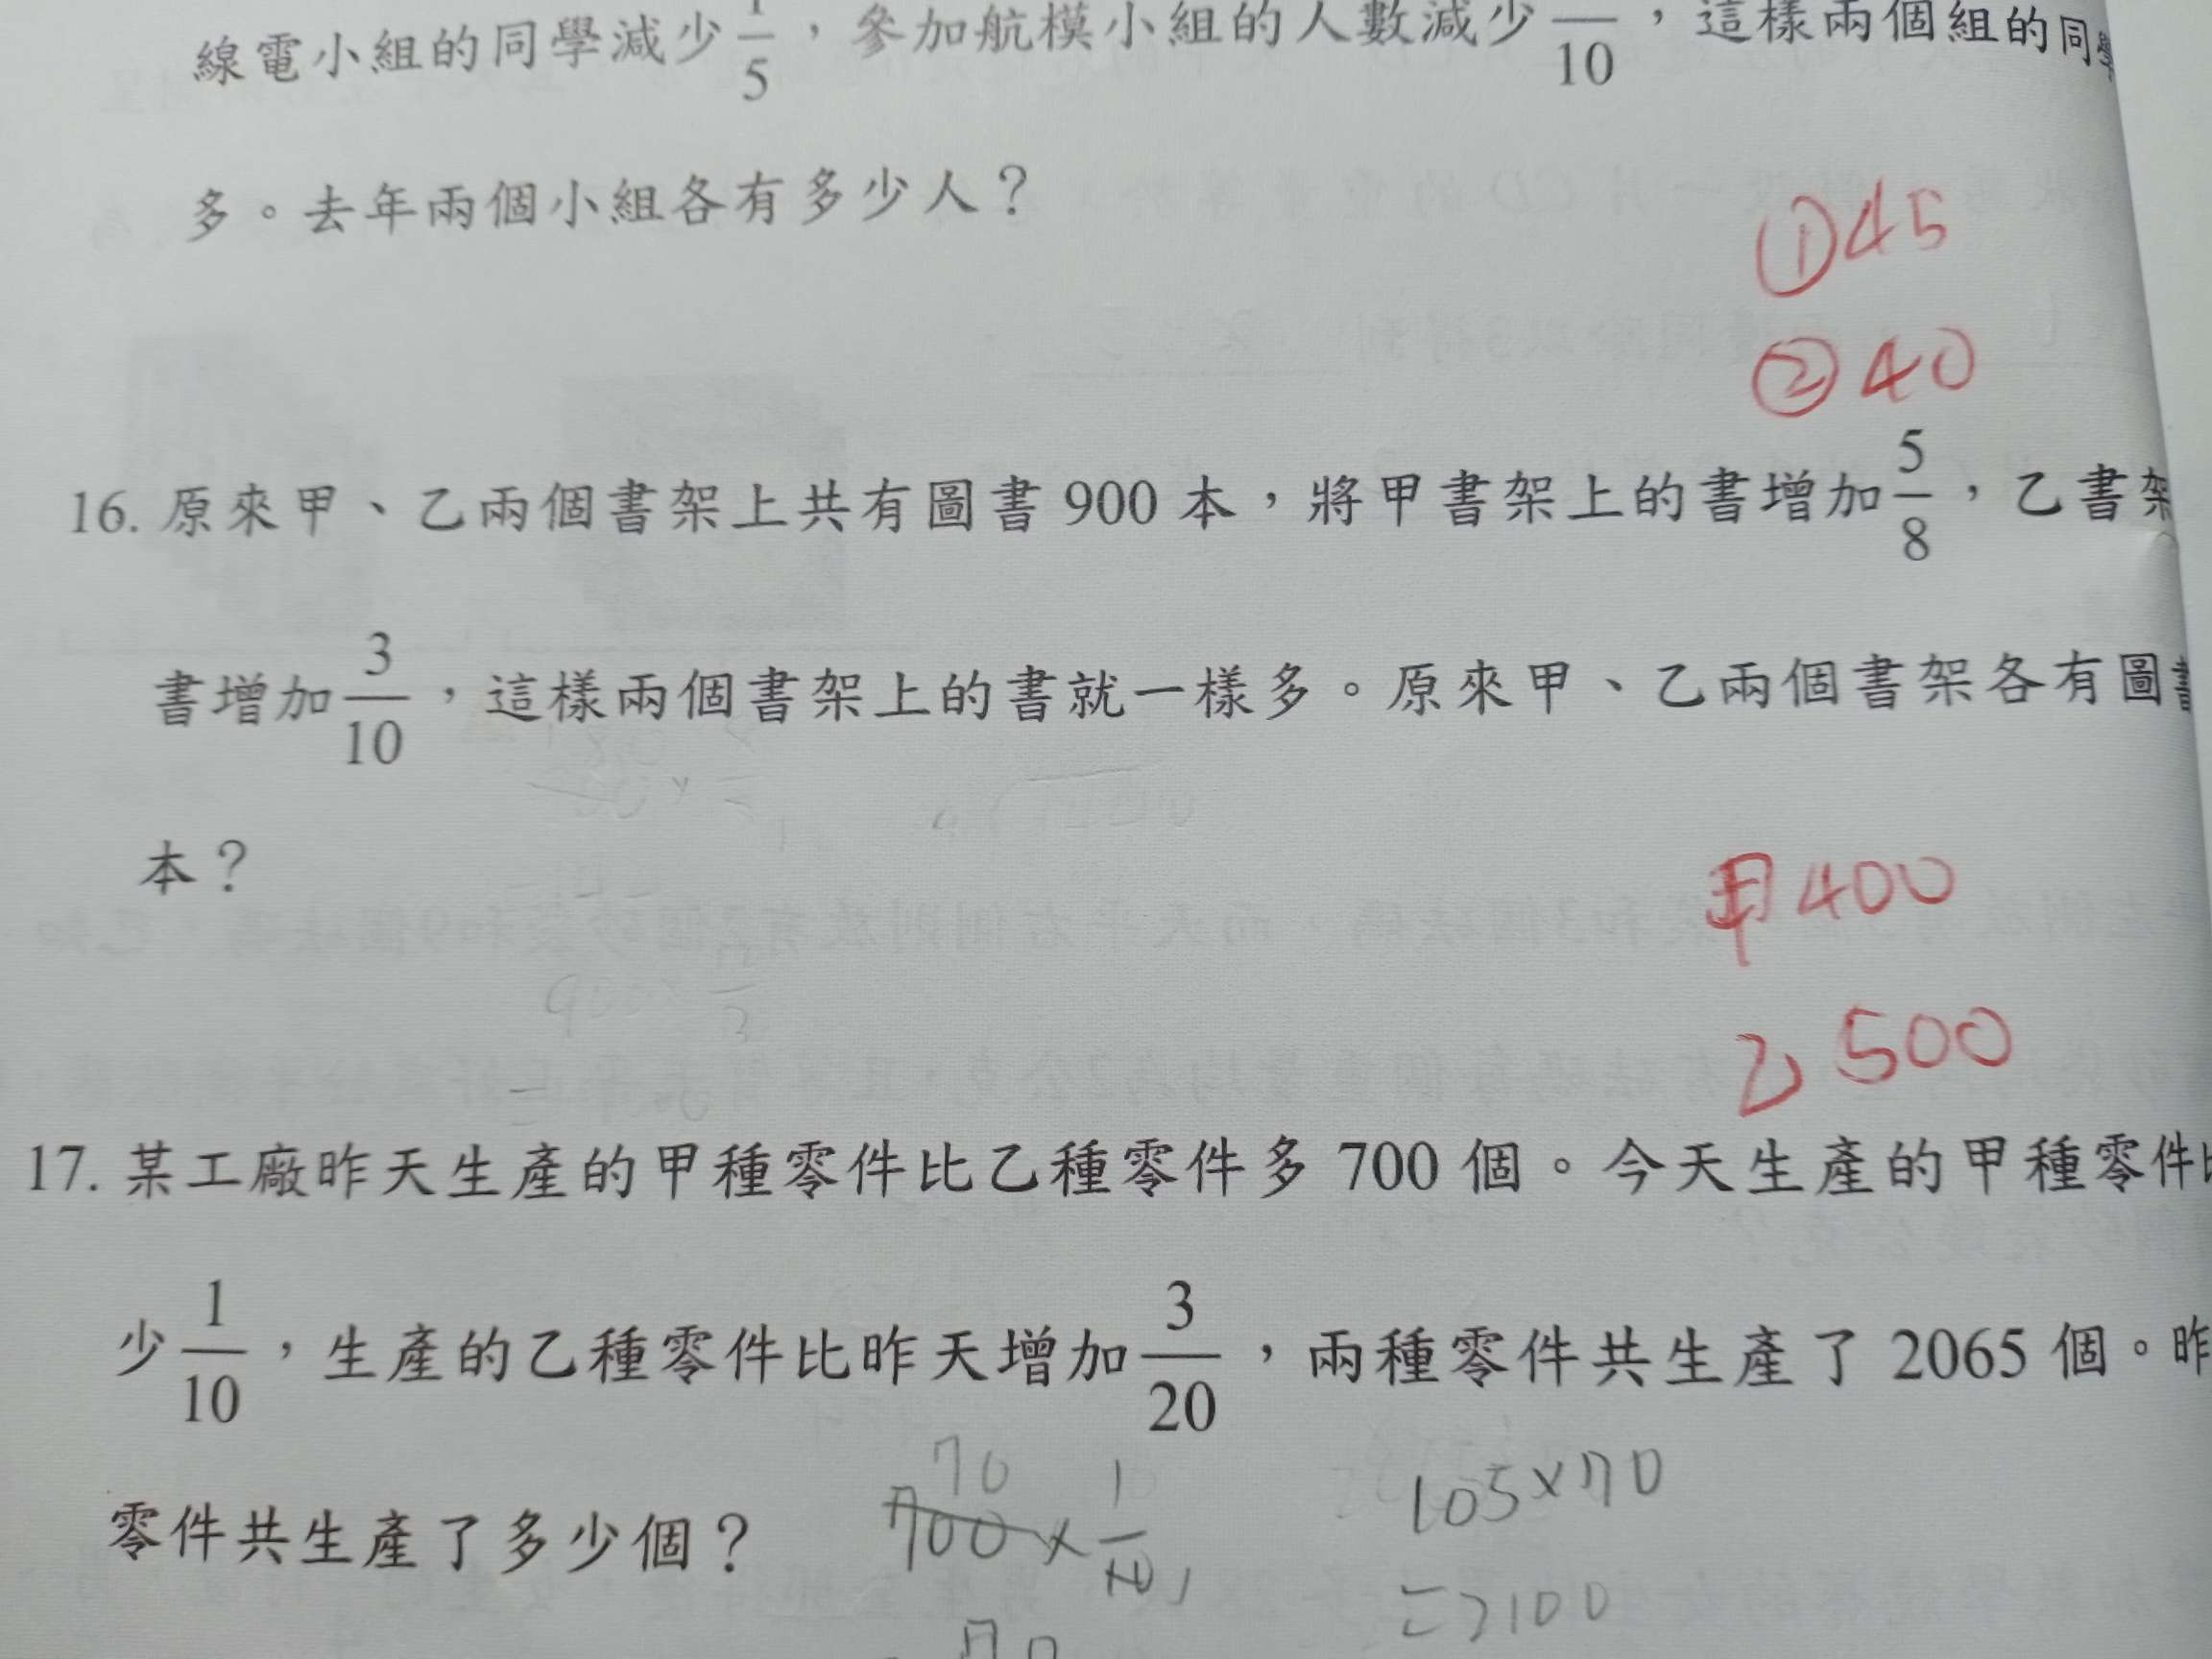 線電小組的同學減少1/5，參加航模小組的人數減少 /10，這樣兩個組的同學
多。去年兩個小組各有多少人？
①45
②40
16. 原來甲、乙兩個書架上共有圖書 900 本，將甲書架上的書增加5/8，乙書架
書增加3/10，這樣兩個書架上的書就一樣多。原來甲、乙兩個書架各有圖書
本？
甲400
乙500
17. 某工廠昨天生產的甲種零件比乙種零件多 700 個。今天生產的甲種零件比
少1/10，生產的乙種零件比昨天增加3/20，兩種零件共生產了 2065 個。昨
零件共生產了多少個？
70
700×1/10
105×70
70